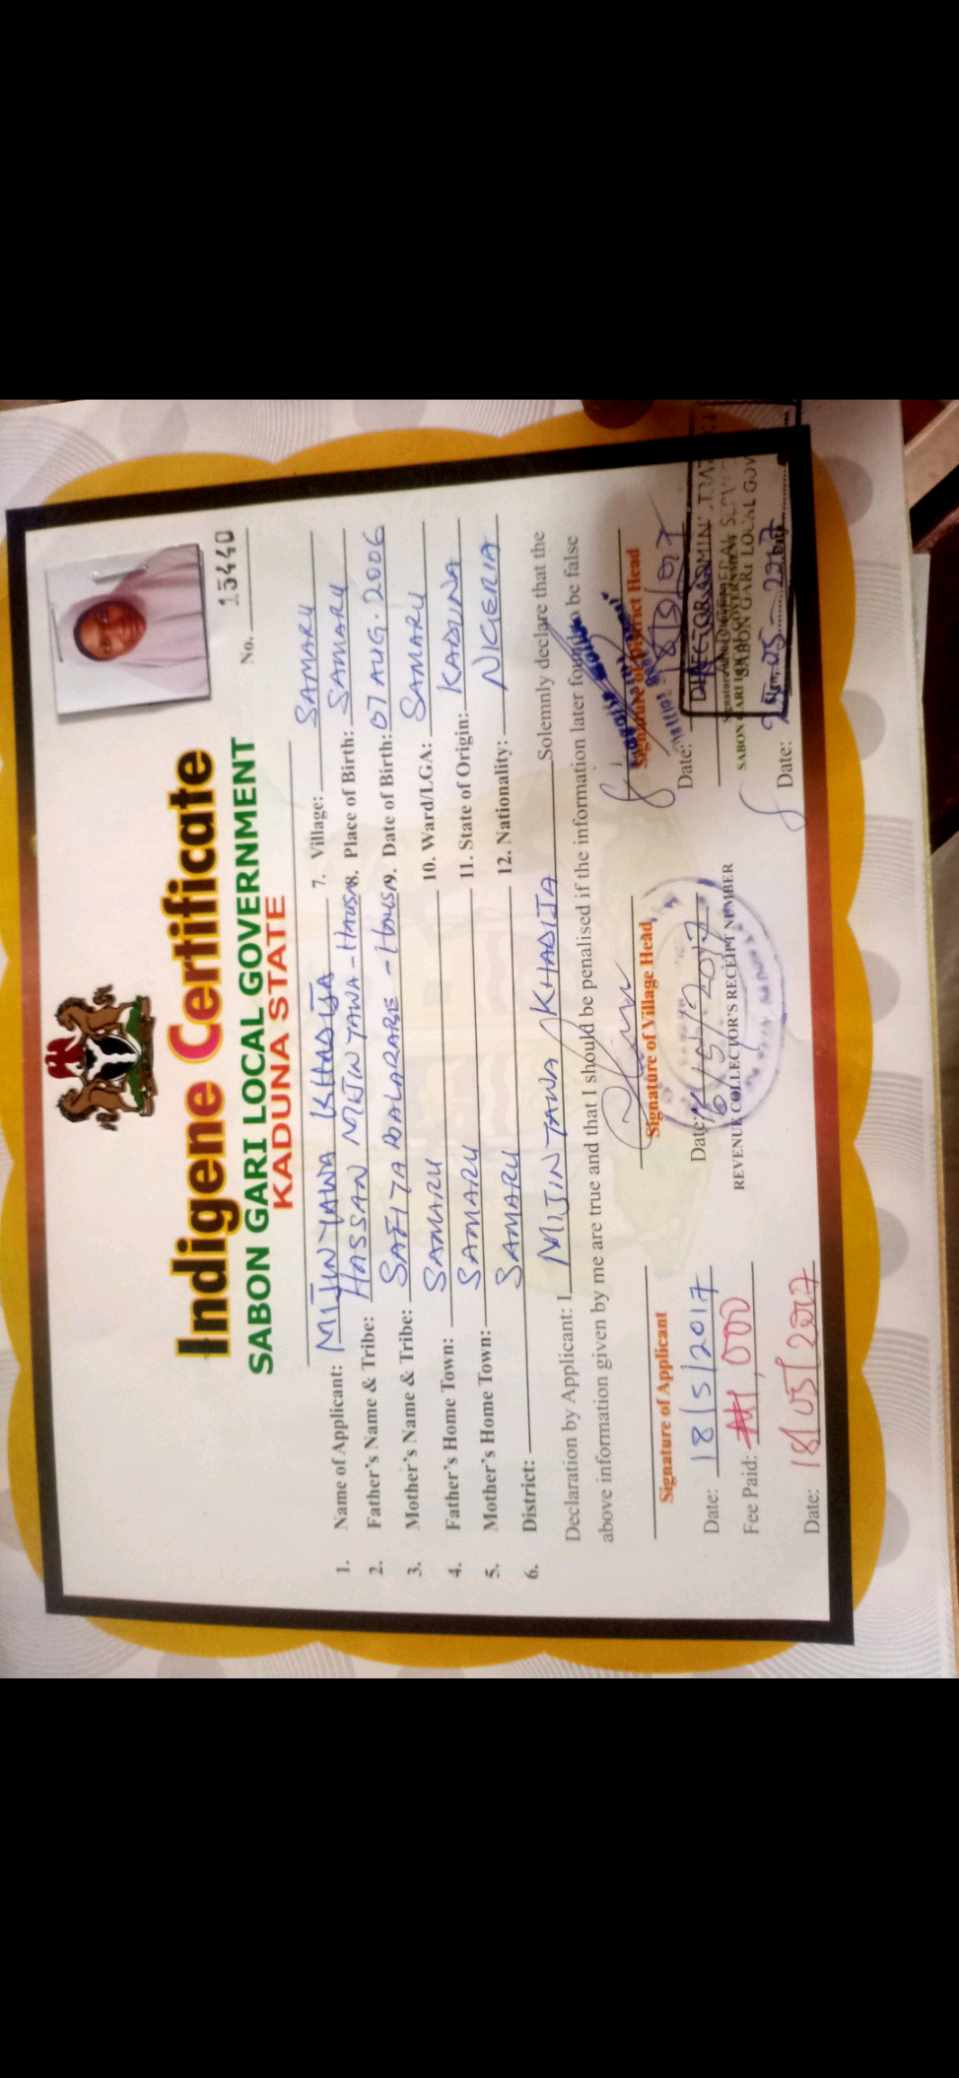 Indigene Certificate
SABON GARI LOCAL GOVERNMENT
KADUNA STATE
No. 15440
1. Name of Applicant: MIJINYAWA KHADIJA
2. Father's Name & Tribe: HASSAN MIJINYAWA - HAUSA
3. Mother's Name & Tribe: SAFIYA - HAUSA
4. Father's Home Town: SAMARU
5. Mother's Home Town: SAMARU
6. District: SAMARU
7. Village: SAMARU
8. Place of Birth: SAMARU
9. Date of Birth: 07 AUG. 2006
10. Ward/LGA: SAMARU
11. State of Origin: KADUNA
12. Nationality: NIGERIA
Declaration by Applicant: I MIJINYAWA KHADIJA Solemnly declare that the
above information given by me are true and that I should be penalised if the information later found to be false
Signature of Applicant
Date: 18/5/2017
Fee Paid: ₦1,000
Date: 18/05/2017
Signature of Village Head
Date: /5/2017
REVENUE COLLECTOR'S RECEIPT NUMBER
Signature of District Head
Date: 18/5/017
DIRECTOR ADMIN
SABON GARI LOCAL GOV
Date: